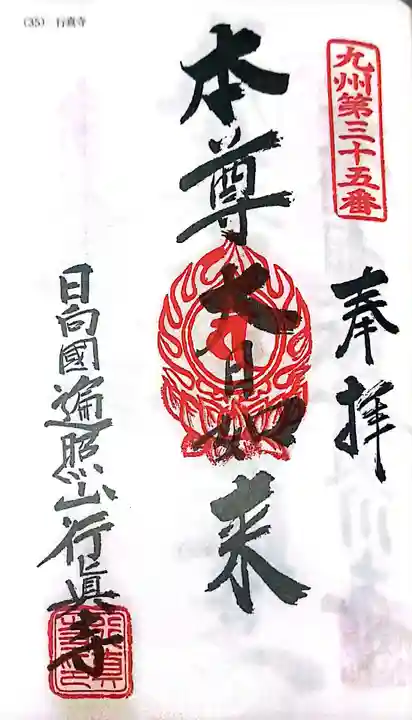 (35) 行真寺
九州第三十五番
奉拝
本尊大日如来
日向國遍照山行眞寺